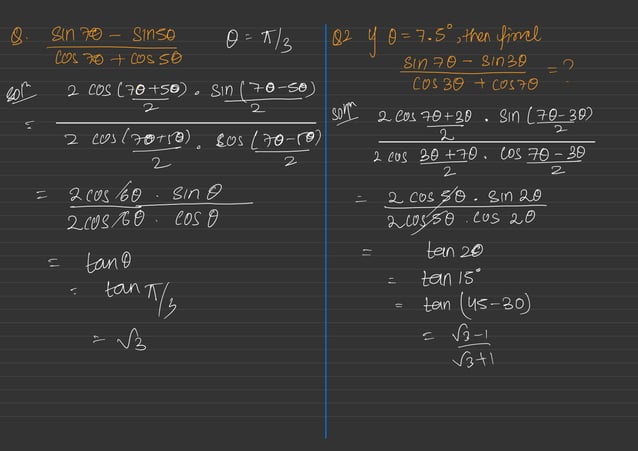 Q. sin 7θ - sin 5θ θ = π/3
cos 7θ + cos 5θ
solⁿ 2 cos (7θ+5θ) . sin (7θ-5θ)
2 2
=
2 cos (7θ+5θ) . cos (7θ-5θ)
2 2
= 2 cos 6θ . sin θ
2 cos 6θ . cos θ
= tan θ
= tan π/3
= √3
Q2 If θ = 7.5°, then find
sin 7θ - sin 3θ = ?
cos 3θ + cos 7θ
solⁿ 2 cos 7θ+3θ . sin (7θ-3θ)
2 2
2 cos 3θ+7θ . cos 7θ-3θ
2 2
= 2 cos 5θ . sin 2θ
2 cos 5θ . cos 2θ
= tan 2θ
= tan 15°
= tan (45-30)
= √3-1
√3+1